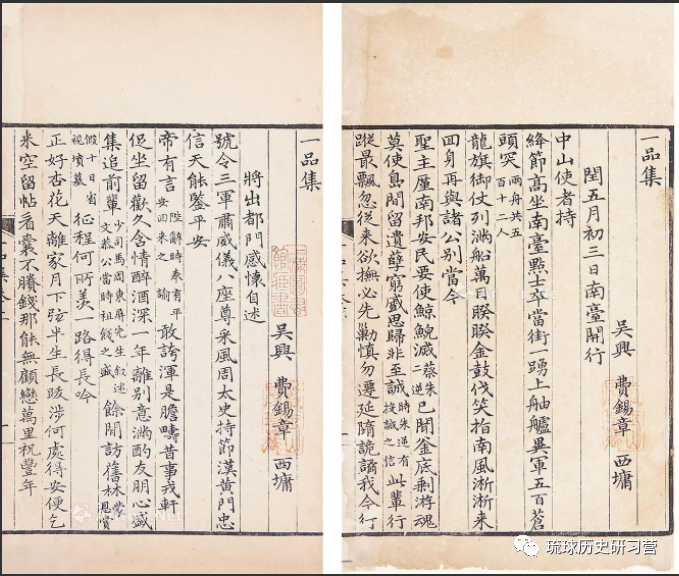 一品集
吳興 費錫章 西墉
閏五月初三日南臺開行
中山使者持
絳節高坐南臺點士卒當街一踴上舳艫異軍五百蒼
頭突 兩舟共五百十二人
龍旗御仗列滿船萬目睽睽金鼓伐笑指南風淅淅来
囬身再與諸公别當今
聖主厪南邦安民要使鯨鯢滅 蔡朱二逆 已開釜底剩游魂
莫使島間留遺孽窮蹙思歸非至誠 時朱逆有投誠之信 此輩行
蹤最飄忽從来欲撫必先勦慎勿遷延隋詭譎我今行
一品集
吳興 費錫章 西墉
將出都門感懷自述
號令三軍肅威儀八座尊采風周太史持節漢黃門忠
信天能鑒平安
帝有言 陛辭時奉有平安囬来之諭 敢誇渾是膽疇昔事戎軒
促坐留歡久含情醉酒深一年離别意滿酌友朋心盛
集追前輩 少司馬周東屏先生叙述文恭公當時祖餞之盛 餘閒訪舊林 蒙恩賞
假十日省視墳墓 征程何所羡一路得長吟
正好杏花天離家月下弦半生長跋涉何處得安便乞
米空留帖看囊不賸錢那能無顧戀萬里祝豐年
琉球历史研习营